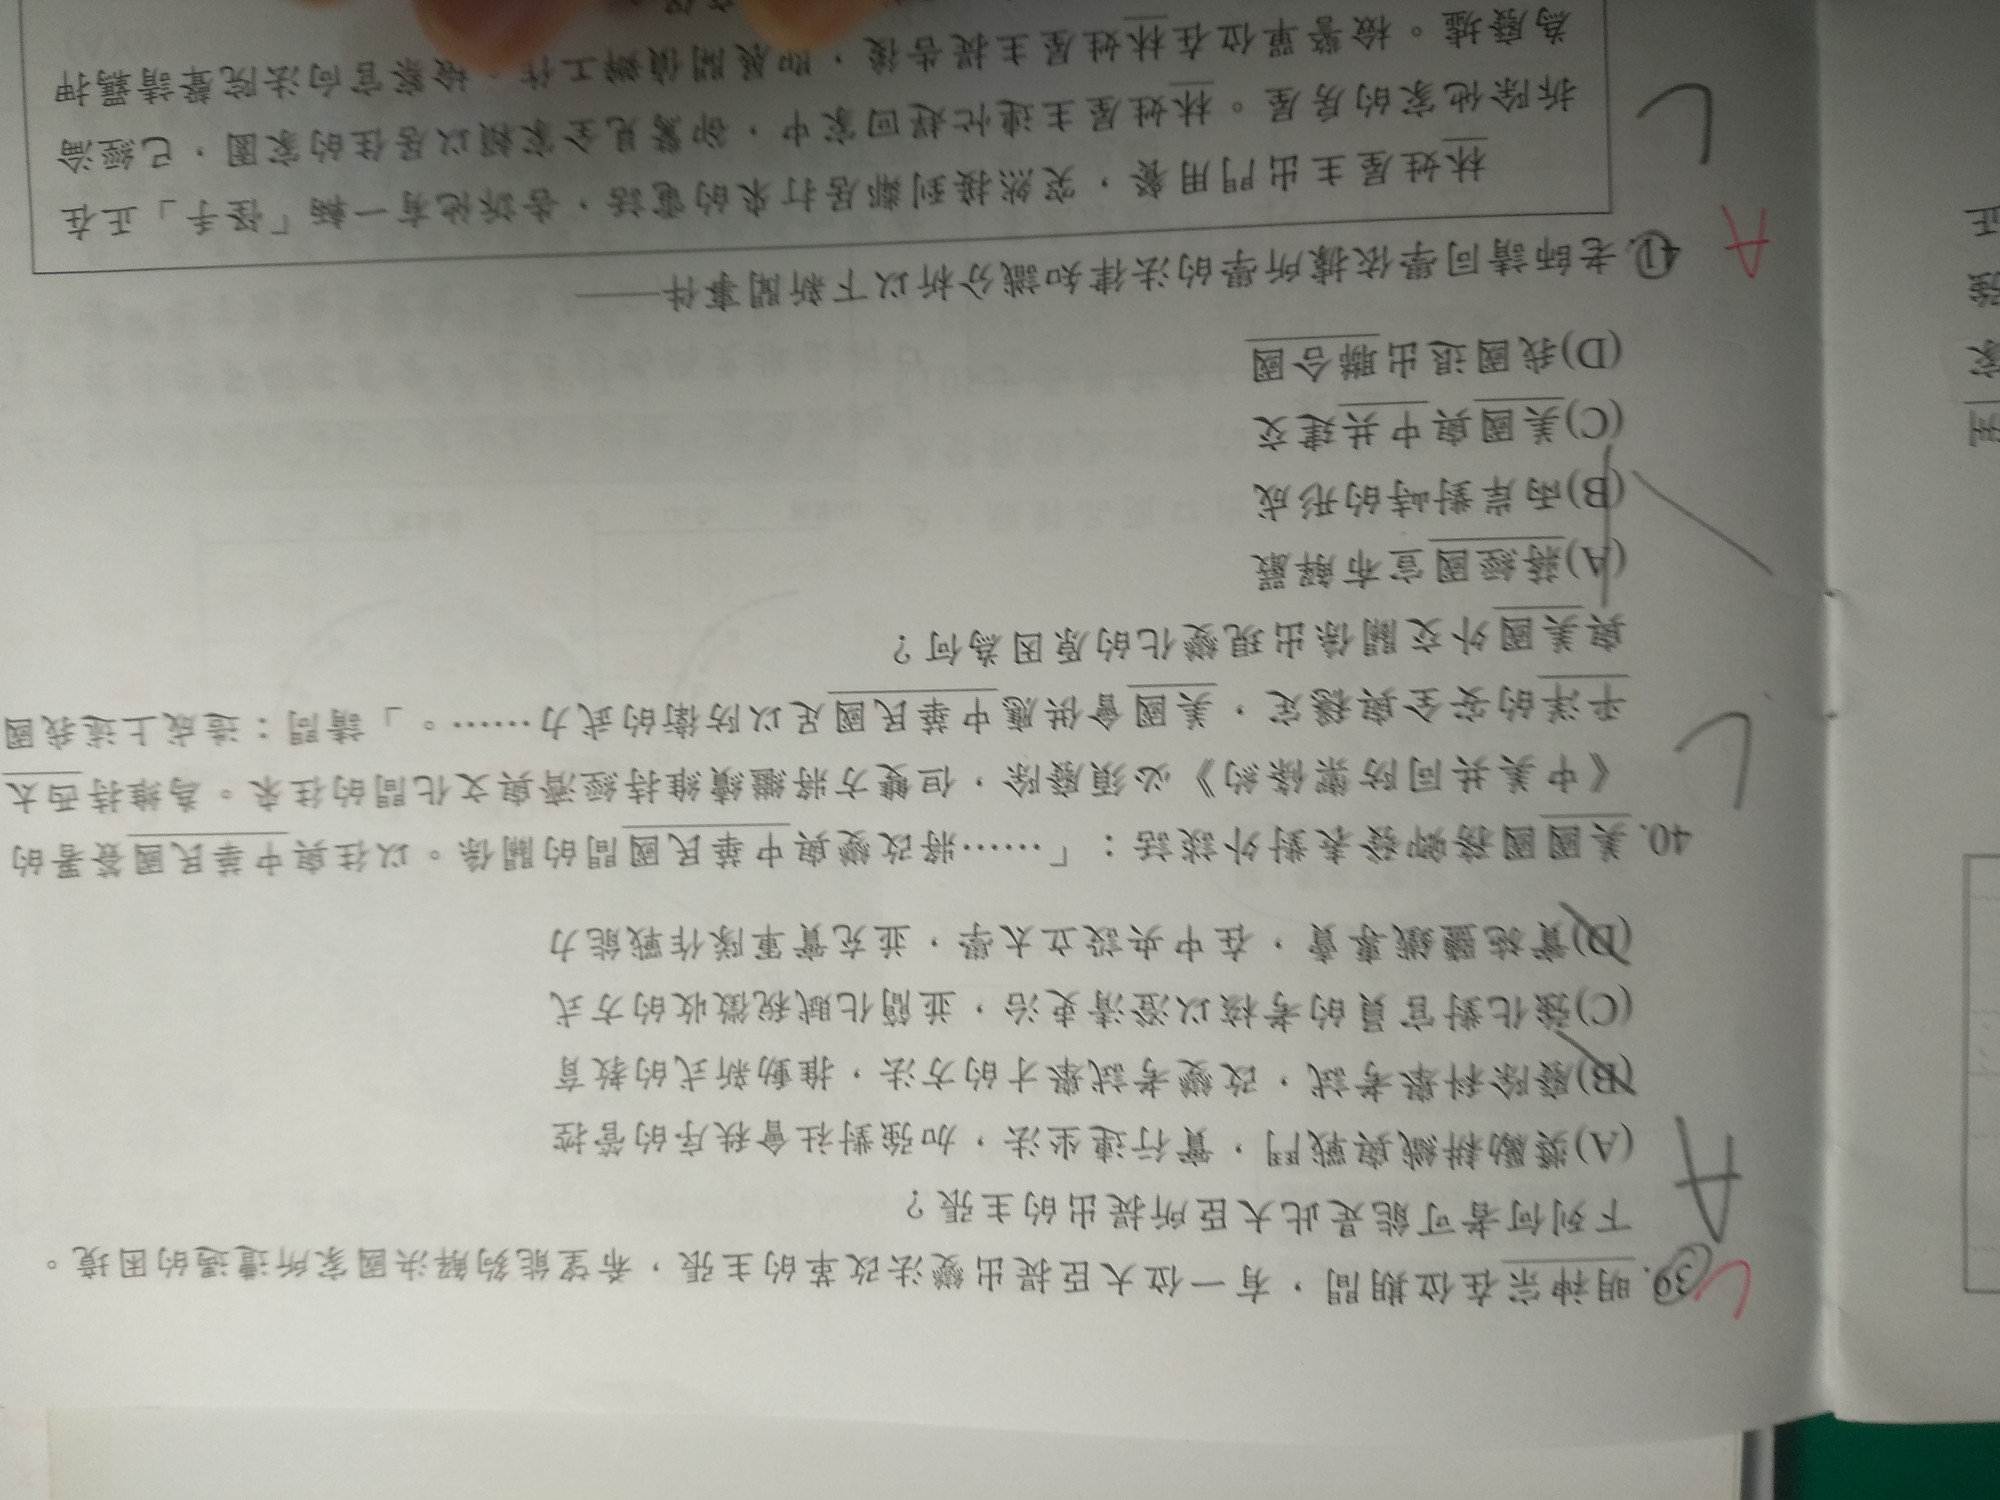 39.明神宗在位期間，有一位大臣提出變法改革的主張，希望能夠解決國家所遭遇的困境。
下列何者可能是此大臣所提出的主張？
(A)獎勵耕織與戰鬥，實行連坐法，加強對社會秩序的管控
(B)廢除科舉考試，改變考試舉才的方法，推動新式的教育
(C)強化對官員的考核以澄清吏治，並簡化賦稅徵收的方式
(D)實施鹽鐵專賣，在中央設立太學，並充實軍隊作戰能力
A
40.美國國務卿發表對外談話：「……將改變與中華民國間的關係。以往與中華民國簽署的
《中美共同防禦條約》必須廢除，但雙方將繼續維持經濟與文化間的往來。為維持西太
平洋的安全與穩定，美國會供應中華民國足以防衛的武力……。」請問：造成上述我國
與美國外交關係出現變化的原因為何？
(A)蔣經國宣布解嚴
(B)兩岸對峙的形成
(C)美國與中共建交
(D)我國退出聯合國
A
41.老師請同學依據所學的法律知識分析以下新聞事件——
林姓屋主出門用餐，突然接到鄰居打來的電話，告訴他有一輛「怪手」正在
拆除他家的房屋。林姓屋主連忙趕回家中，卻驚見全家賴以居住的家園，已經淪
為廢墟。檢警單位在林姓屋主提告後，即展開偵辦工作。檢察官向法院聲請羈押
正
家
州